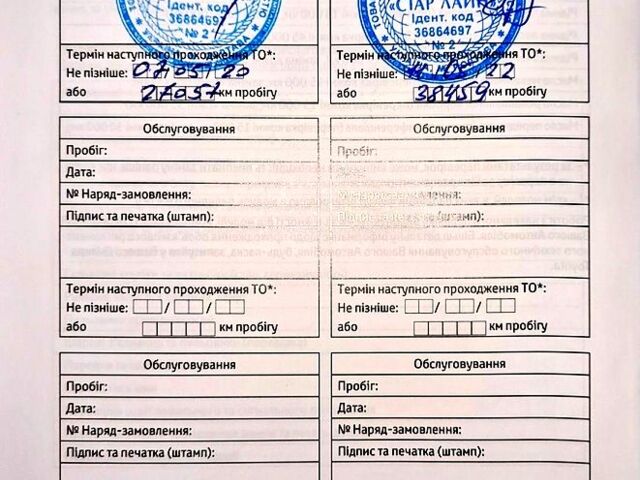 Ідент. код
36864697
№ 2
Термін наступного проходження ТО*:
Не пізніше:
або 27057 км пробігу
"СТАР ЛАЙН"
Ідент. код
36864697
№ 2
Термін наступного проходження ТО*:
Не пізніше: 22
або 38459 км пробігу
Обслуговування
Пробіг:
Дата:
№ Наряд-замовлення:
Підпис та печатка (штамп):
Термін наступного проходження ТО*:
Не пізніше: / /
або км пробігу
Обслуговування
Пробіг:
Термін наступного проходження ТО*:
Не пізніше: / /
або км пробігу
Обслуговування
Пробіг:
Дата:
№ Наряд-замовлення:
Підпис та печатка (штамп):
Обслуговування
Пробіг:
Дата:
№ Наряд-замовлення:
Підпис та печатка (штамп):